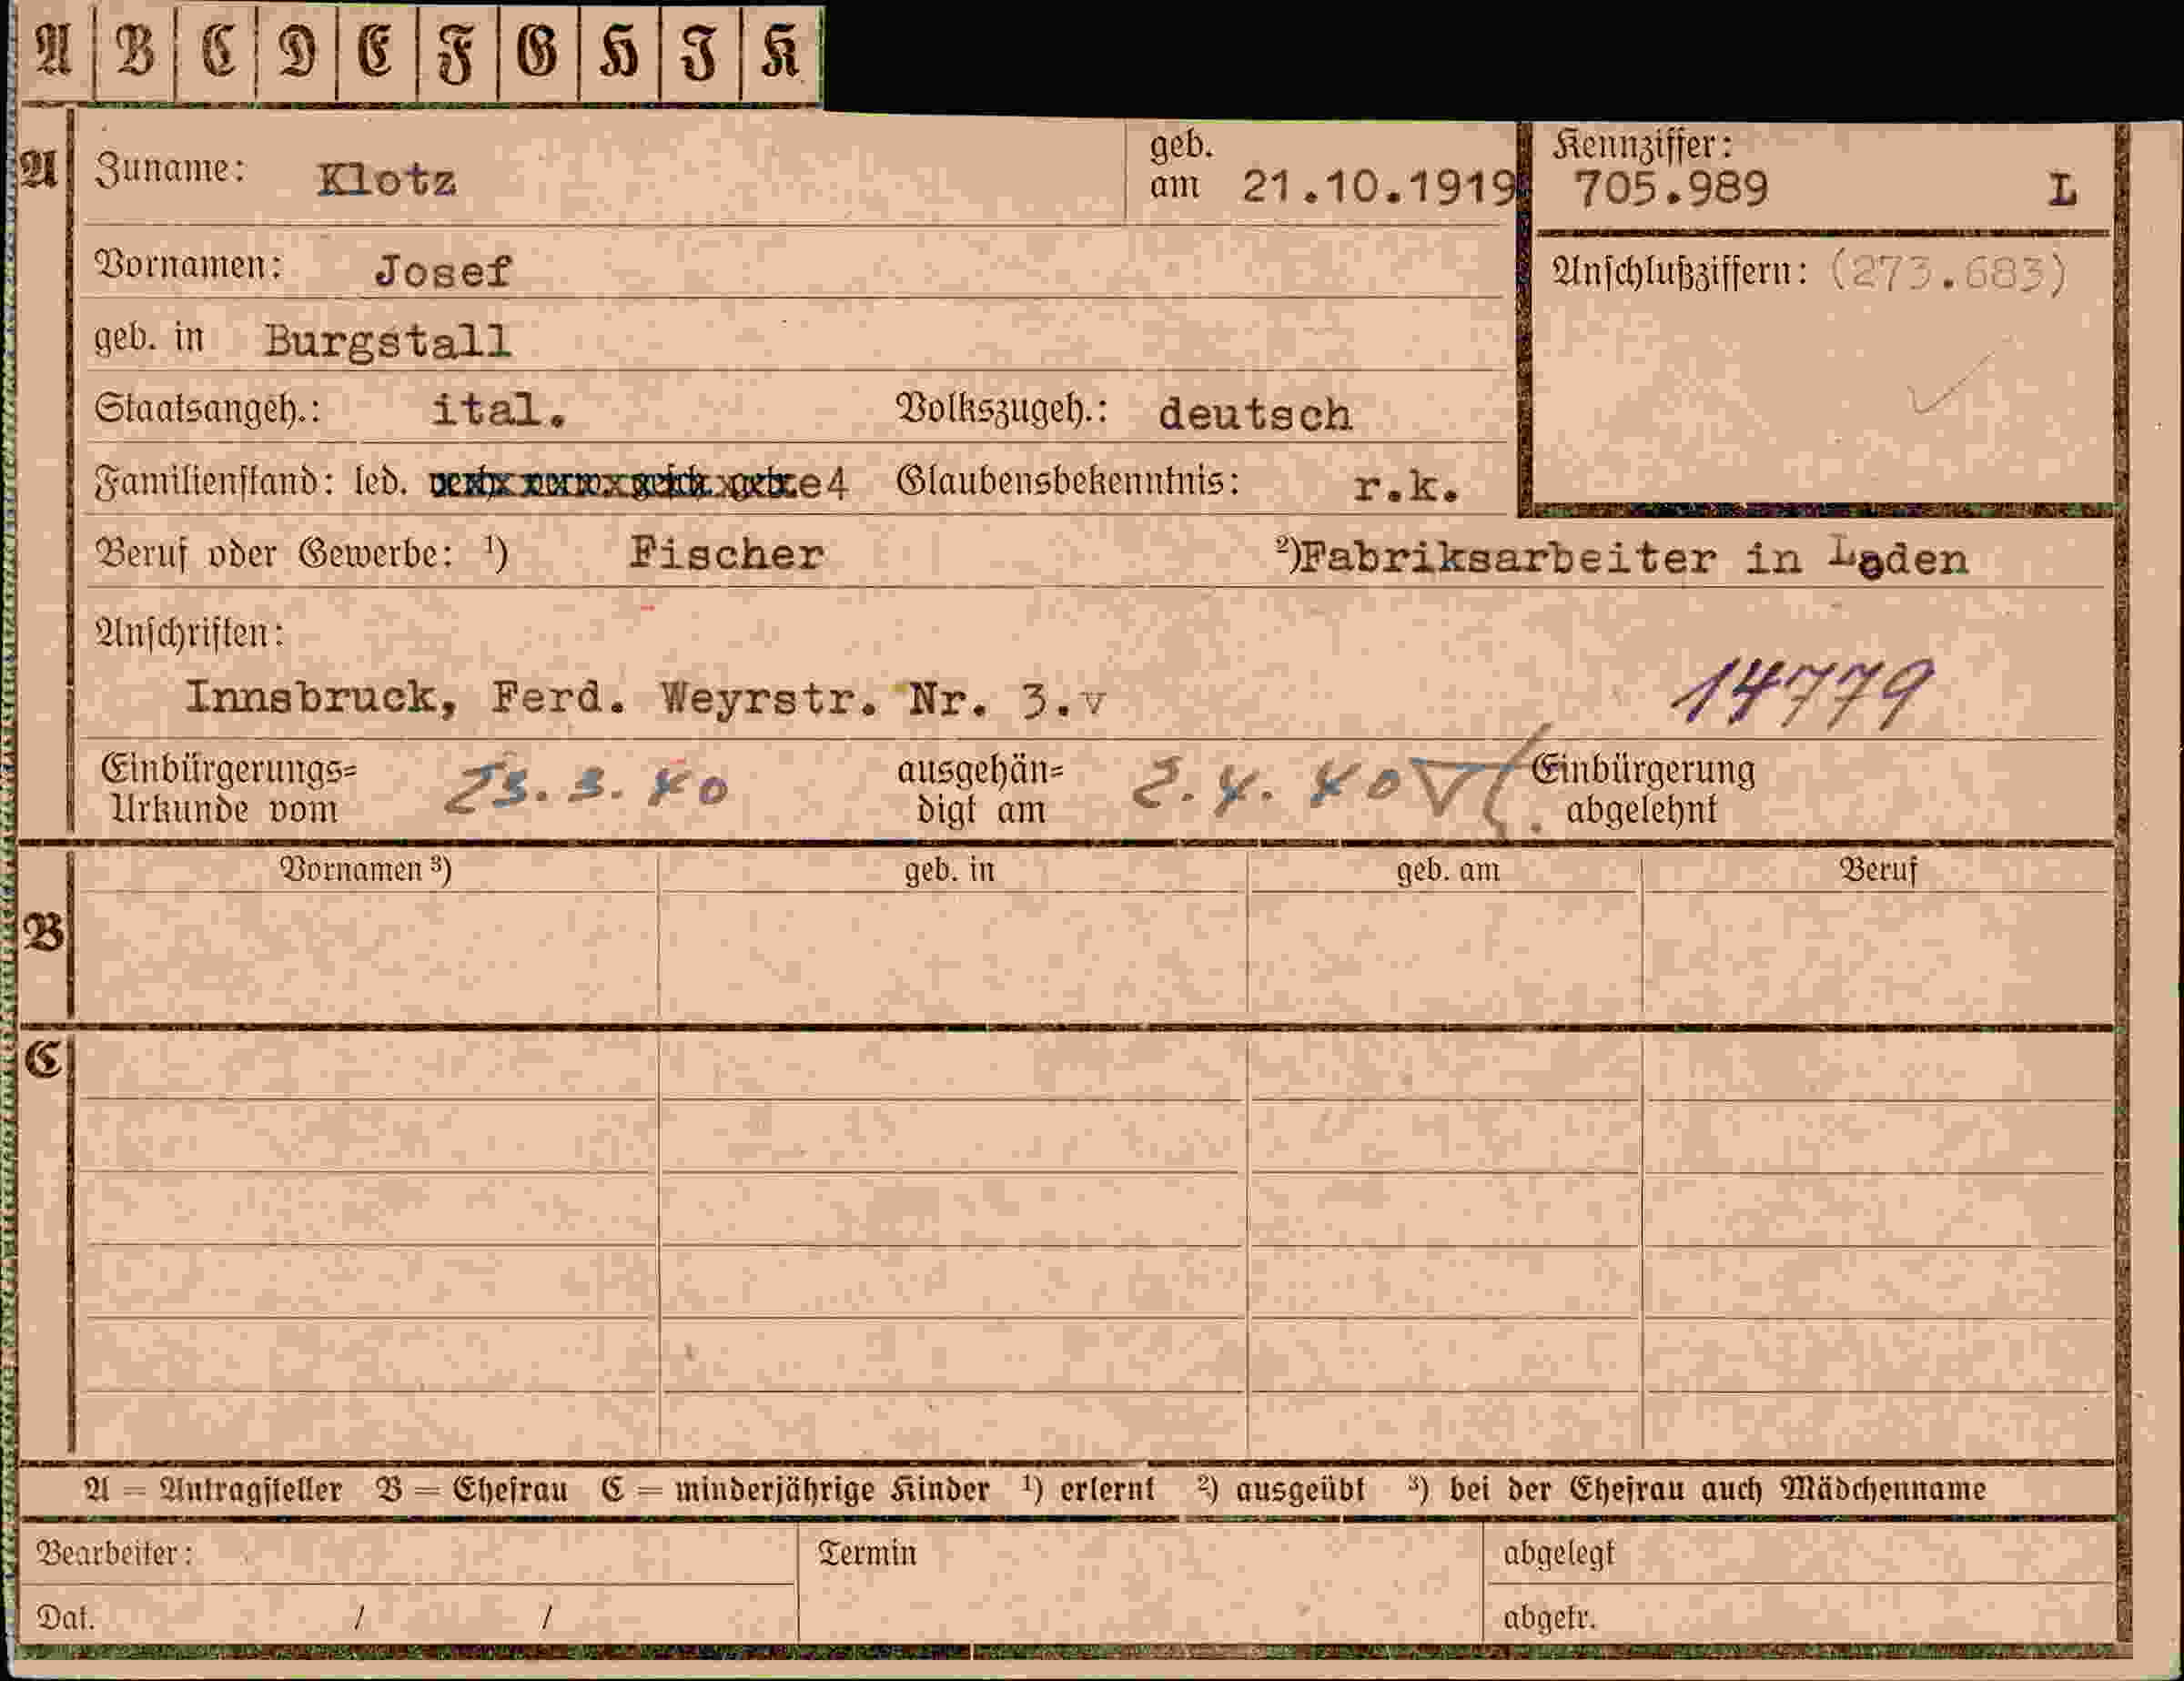 A B C D E F G H I K
A Zuname: Klotz geb. am 21.10.1919 Kennziffer: 705.989 L
Vornamen: Josef Anschlußziffern: (273.683)
geb. in Burgstall
Staatsangeh.: ital. Volkszugeh.: deutsch
Familienstand: led. verh. verw. gesch. getr. e4 Glaubensbekenntnis: r.k.
Beruf oder Gewerbe: ¹) Fischer ²)Fabriksarbeiter in
Anschriften:
Innsbruck, Ferd. Weyrstr. Nr. 3.v 14779
Einbürgerungs= Urkunde vom 23.3.40 ausgehän= digt am 2.4.40 Einbürgerung abgelehnt
B Vornamen ³) geb. in geb. am Beruf
C
A = Antragsteller B = Ehefrau C = minderjährige Kinder ¹) erlernt ²) ausgeübt ³) bei der Ehefrau auch Mädchenname
Bearbeiter: Termin abgelegt
Dat. / / abgetr.